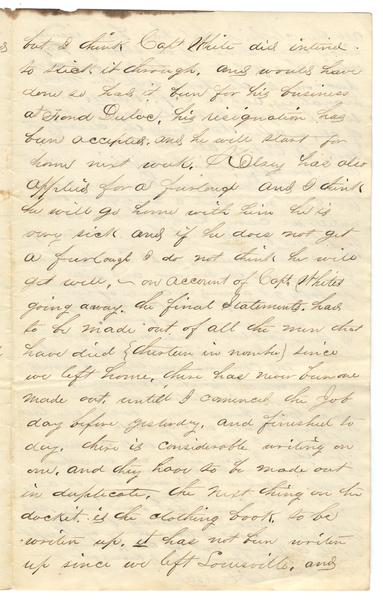 but I think Capt White did intend
to stick it through, and would have
done so had it bun for his business
at Fond Dulac, his resignation has
bun accepted, and he will start for
home next week. Olay has also
applied for a furlough and I think
he will go home with him he is
very sick and if he does not get
a furlough I do not think he will
get well, on account of Capt Whites
going away. the final Statements. had
to be made out, of all the men that
have died (thirteen in number) since
we left home, there has never bun one
made out, untill I commenced the Job
day before yesterday, and finished to
day, there is considerable writing on
one, and they have to be made out
in duplicate, the next thing on the
docket, is the clothing book, to be
writen up, it has not bun writen
up since we left Louisville, and